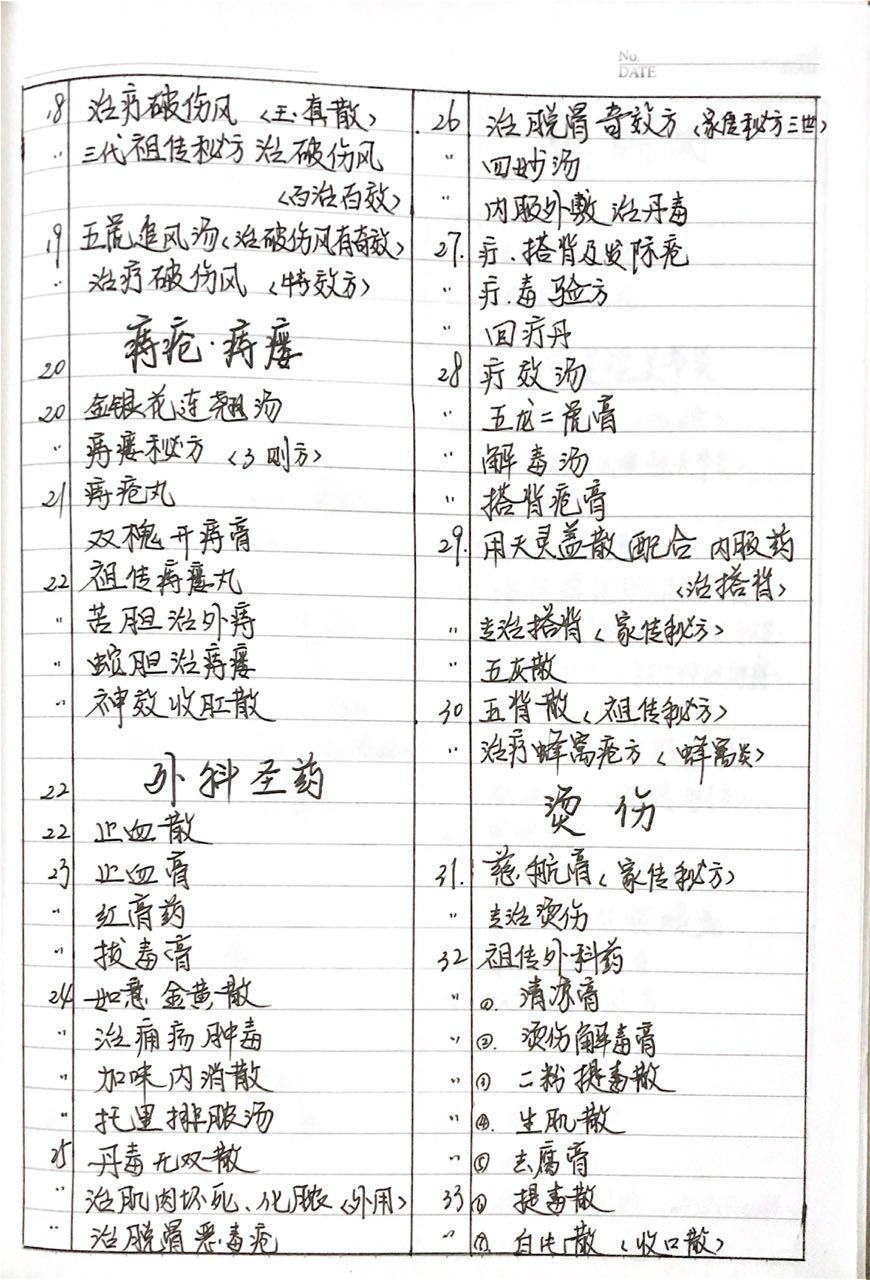 No.
DATE
18 治疗破伤风〈玉真散〉
" 三代祖传秘方治破伤风
〈百治百效〉
19 五虎追风汤〈治破伤风有奇效〉
" 治疗破伤风〈特效方〉
20 痔疮·痔瘘
20 金银花连翘汤
" 痔瘘秘方〈3则方〉
21 痔疮丸
双槐开痔膏
22 祖传痔瘘丸
" 苦胆治外痔
" 蛇胆治痔瘘
" 神效收肛散
22 外科圣药
22 止血散
23 止血膏
" 红膏药
" 拔毒膏
24 如意金黄散
" 治痈疡肿毒
" 加味内消散
" 托里排脓汤
25 丹毒无双散
" 治肌肉坏死、化脓〈外用〉
" 治脱骨恶毒疮
26 治脱骨奇效方〈家传秘方三世〉
" 四妙汤
" 内服外敷治丹毒
27. 疔、搭背及发际疮
" 疔毒验方
" 回疔丹
28 疔效汤
" 五龙二虎膏
" 解毒汤
" 搭背疮膏
29. 用天灵盖散配合内服药
〈治搭背〉
" 专治搭背〈家传秘方〉
" 五灰散
30 五背散〈祖传秘方〉
" 治疗蜂窝疮方〈蜂窝炎〉
烫伤
31. 慈航膏〈家传秘方〉
" 专治烫伤
32 祖传外科药
" ①. 清凉膏
" ②. 烫伤解毒膏
" ③ 二粉提毒散
" ④. 生肌散
" ⑤ 去腐膏
33 ⑥ 提毒散
" ⑦. 白片散〈收口散〉